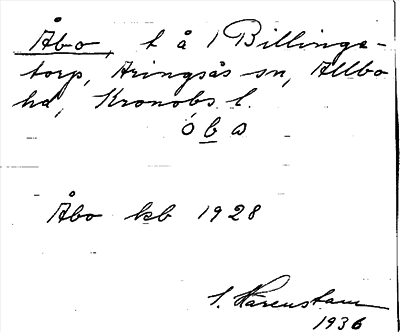 Åbo, t å 1 Billinge-
torp, Aringsås sn, Allbo
hd, Kronobs. l.
ó b ω
Åbo kb 1928
S. Härenstam
1936